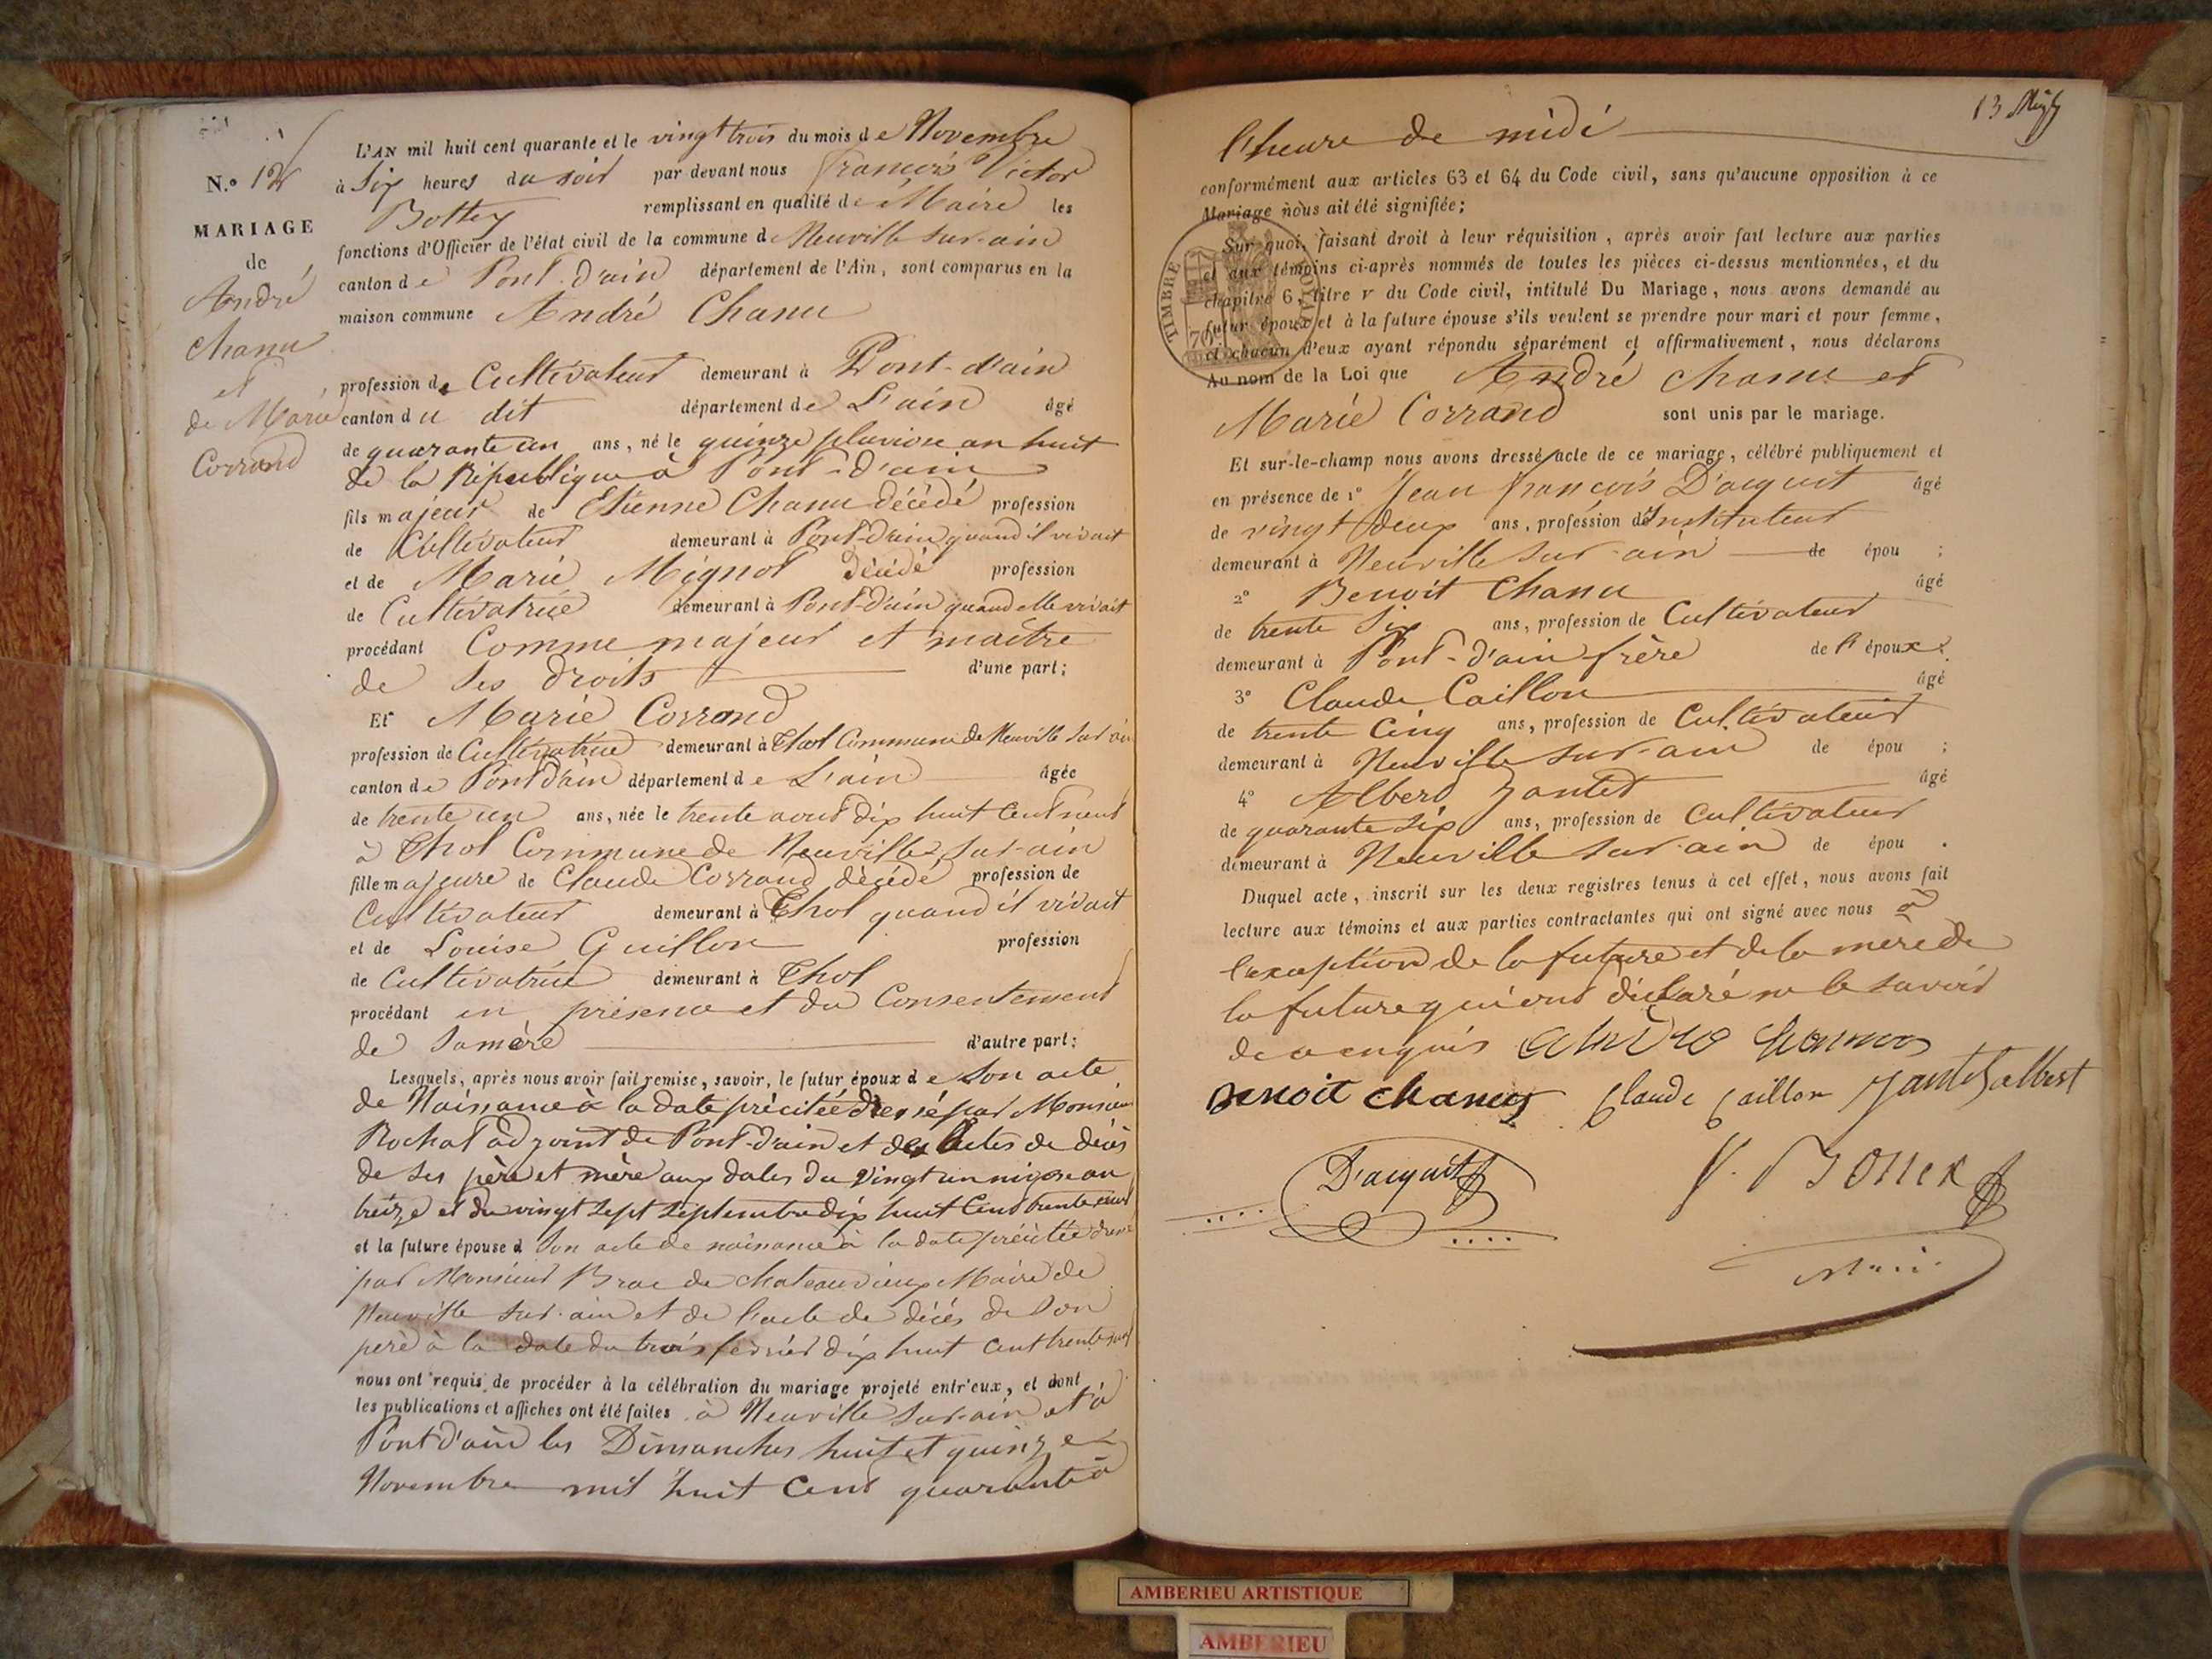 N.° 12
MARIAGE
de
André
Chanu
et
de Marie
Corrand
L'AN mil huit cent quarante et le vingt trois du mois de Novembre
à Six heures du soir par devant nous francois Victor
Bottex remplissant en qualité de Maire les
fonctions d'Officier de l'état civil de la commune de Neuville sur-ain
canton de Pont-d'ain département de l'Ain, sont comparus en la
maison commune André Chanu
profession de Cultivateur demeurant à Pont-d'ain
canton du dit département de L'ain âgé
de quarante un ans, né le quinze pluviose an huit
de la République à Pont-d'ain
fils majeur de Etienne Chanu décédé profession
de Cultivateur demeurant à Pont-d'ain quand il vivait
et de Marie Mignot décédé profession
de Cultivatrice demeurant à Pont-d'ain quand elle vivait
procédant Comme majeur et maitre
de ses droits d'une part;
Et Marie Corrand
profession de Cultivatrice demeurant à Thol Commune de Neuville sur ain
canton de Pont d'ain département de L'ain âgée
de trente un ans, née le trente aout dix huit cent neuf
à Thol Commune de Neuville sur-ain
fille majeure de Claude Corrand décédé profession de
Cultivateur demeurant à Thol quand il vivait
et de Louise Guillon profession
de Cultivatrice demeurant à Thol
procédant en présence et du Consentement
de sa mère d'autre part;
Lesquels, après nous avoir fait remise, savoir, le futur époux de son acte
de Naissance à la date précitée dressé par Monsieur
Rochat adjoint de Pont-d'ain et des actes de décès
de ses père et mère aux dates du vingt un nivose an
treize et du vingt sept septembre dix huit cent trente
et la future épouse d son acte de naissance à la date précitée
par Monsieur Brac de Chateauvieux Maire de
Neuville sur-ain et de l'acte de décès de son
père à la date du trois février dix huit cent trente
nous ont requis de procéder à la célébration du mariage projeté entr'eux, et dont
les publications et affiches ont été faites à Neuville sur-ain et à
Pont d'ain les Dimanches huit et quinze
Novembre mil huit cent quarante à
13
l'heure de midi
conformément aux articles 63 et 64 du Code civil, sans qu'aucune opposition à ce
Mariage nous ait été signifiée;
TIMBRE ROYAL
70
Sur quoi, faisant droit à leur réquisition, après avoir fait lecture aux parties
et aux témoins ci-après nommés de toutes les pièces ci-dessus mentionnées, et du
chapitre 6, titre v du Code civil, intitulé Du Mariage, nous avons demandé au
futur époux et à la future épouse s'ils veulent se prendre pour mari et pour femme,
et chacun d'eux ayant répondu séparément et affirmativement, nous déclarons
Au nom de la Loi que André Chanu et
Marie Corrand sont unis par le mariage.
Et sur-le-champ nous avons dressé acte de ce mariage, célébré publiquement et
en présence de 1° Jean françois D'acquit âgé
de vingt deux ans, profession d'Instituteur
demeurant à Neuville sur-ain de épou ;
2° Benoit Chanu âgé
de trente six ans, profession de Cultivateur
demeurant à Pont-d'ain frère de l'époux;
3° Claude Caillon âgé
de trente Cinq ans, profession de Cultivateur
demeurant à Neuville sur-ain de épou ;
4° Albert Jantet âgé
de quarante six ans, profession de Cultivateur
demeurant à Neuville sur-ain de épou .
Duquel acte, inscrit sur les deux registres tenus à cet effet, nous avons fait
lecture aux témoins et aux parties contractantes qui ont signé avec nous à
l'exception de la future et de la mère de
la future qui ont déclaré ne le savoir
de ce enquis
Benoit chanu Claude Caillon Jantet albert
D'acquit V. Bottex
Maire
AMBERIEU ARTISTIQUE
AMBERIEU